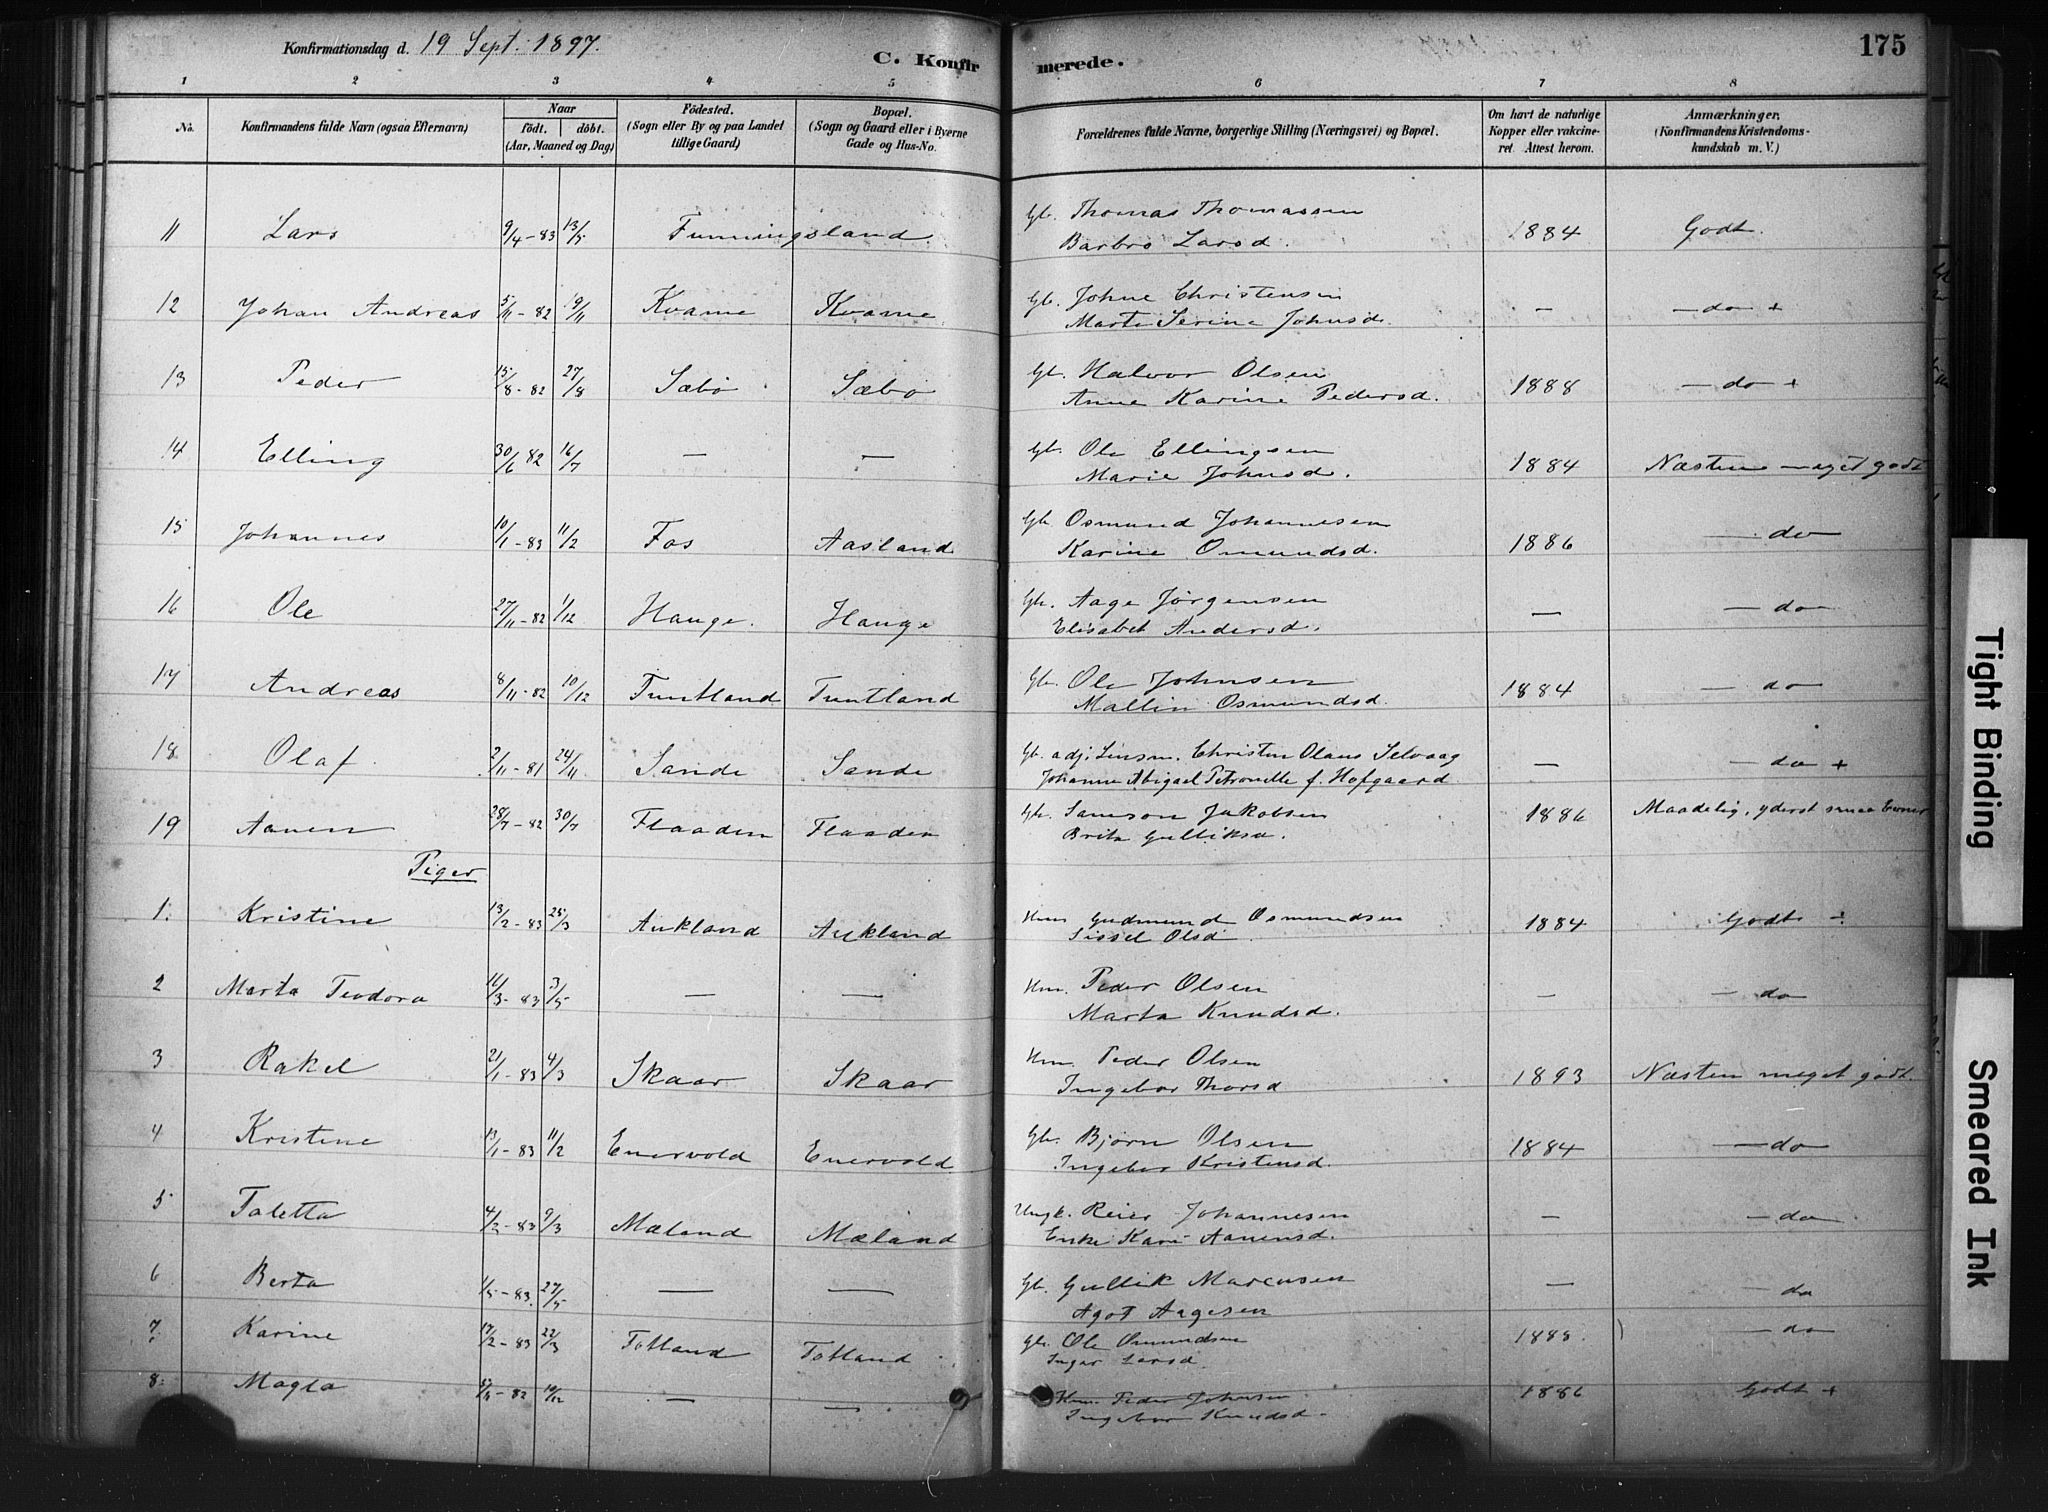 Konfirmationsdag d. 19 Sept. 1897.
C. Konfirmerede.
175
1 2 3 4 5 6 7 8
No.
Konfirmandens fulde Navn (ogsaa Efternavn)
Naar
födt. döbt.
(Aar, Maaned og Dag)
Födested.
(Sogn eller By og paa Landet
tillige Gaard)
Bopæl.
(Sogn og Gaard eller i Byerne
Gade og Hus-No.
Forældrenes fulde Navne, borgerlige Stilling (Næringsvei) og Bopæl.
Om havt de naturlige
Kopper eller vakcine-
ret. Attest herom.
Anmærkninger.
(Konfirmandens Kristendoms-
kundskab m. V.)
11 Lars 9/4-83 13/5 Funningsland. Gb. Thomas Thomassen 1884 Godt.
Barbro Larsd.
12 Johan Andreas 5/11-82 19/11 Kvame Kvame Gb. Johne Christensen — — do +
Marte Serine Johnsd.
13 Peder 15/8-82 27/8 Sæbø Sæbø Gb. Halvor Olsen 1888 — do +
Anne Karine Pedersd.
14 Elling 30/6 82 16/7 — — Gb. Ole Ellingsen 1884 Næsten meget godt
Marie Johnsd.
15 Johannes 10/1-83 11/2 Fos Aasland Gb. Osmund Johannesen 1886 — do
Karine Omundsd.
16 Ole 27/11-82 1/12 Hauge. Hauge Gb. Aage Jørgensen — — do
Elisabet Andersd.
17 Andreas 8/11-82 10/12 Tuntland Tuntland Gb. Ole Johnsen 1884 — do
Mallin Osmundsd.
18 Olaf 2/11-81 24/11 Sande Sande Gb. adj. Linsm. Christen Olaus Selvaag — — do +
Johanne Abigael Petronelle f. Hofgaard
19 Aanen 28/7-82 30/7 Flaaden Flaaden Gb. Samson Jakobsen 1886 Maadelig, yderst smaa Evner
Brita Gulliksd.
Piger
1. Kristine 13/2-83 25/3 Aukland Aukland Hm Gudmund Osmundsen 1884 Godt +
Sissel Olsd.
2 Marta Teodora 16/3-83 3/5 — — Hm. Peder Olsen — — do
Marta Knudsd.
3 Rakel 21/1-83 4/3 Skaar Skaar Hm. Peder Olsen 1893 Næsten meget godt.
Ingebor Thorsd
4 Kristine 13/1-83 11/2 Enervold Enervold Gb. Bjørn Olsen 1884 — do
Ingebor Kristensd.
5 Taletta 4/2-83 9/3 Mæland Mæland Ungk. Reier Johannesen — — do
Enke Kari Aanensd.
6 Berta 1/5-83 27/5 — — Gb. Gullik Marcusen — — do
Agot Aagesen
7. Karine 17/2-83 22/3 Totland Totland Gb. Ole Omundsen 1885. — do
Inger Larsd.
8. Magla — — Hm. Peder Johnsen 1886 Godt +
Ingebor Knudsd.
Tight Binding
Smeared Ink